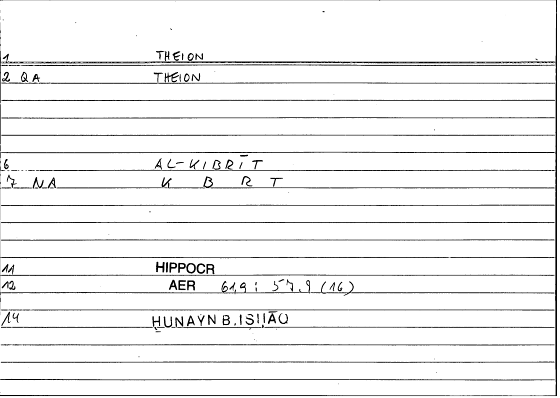 1 THEION
2 QA THEION
6 AL-KIBRĪT
7 NA K B R T
11 HIPPOCR
12 AER 61,9 : 57,9 (16)
14 ḤUNAYN B. ISḤĀQ